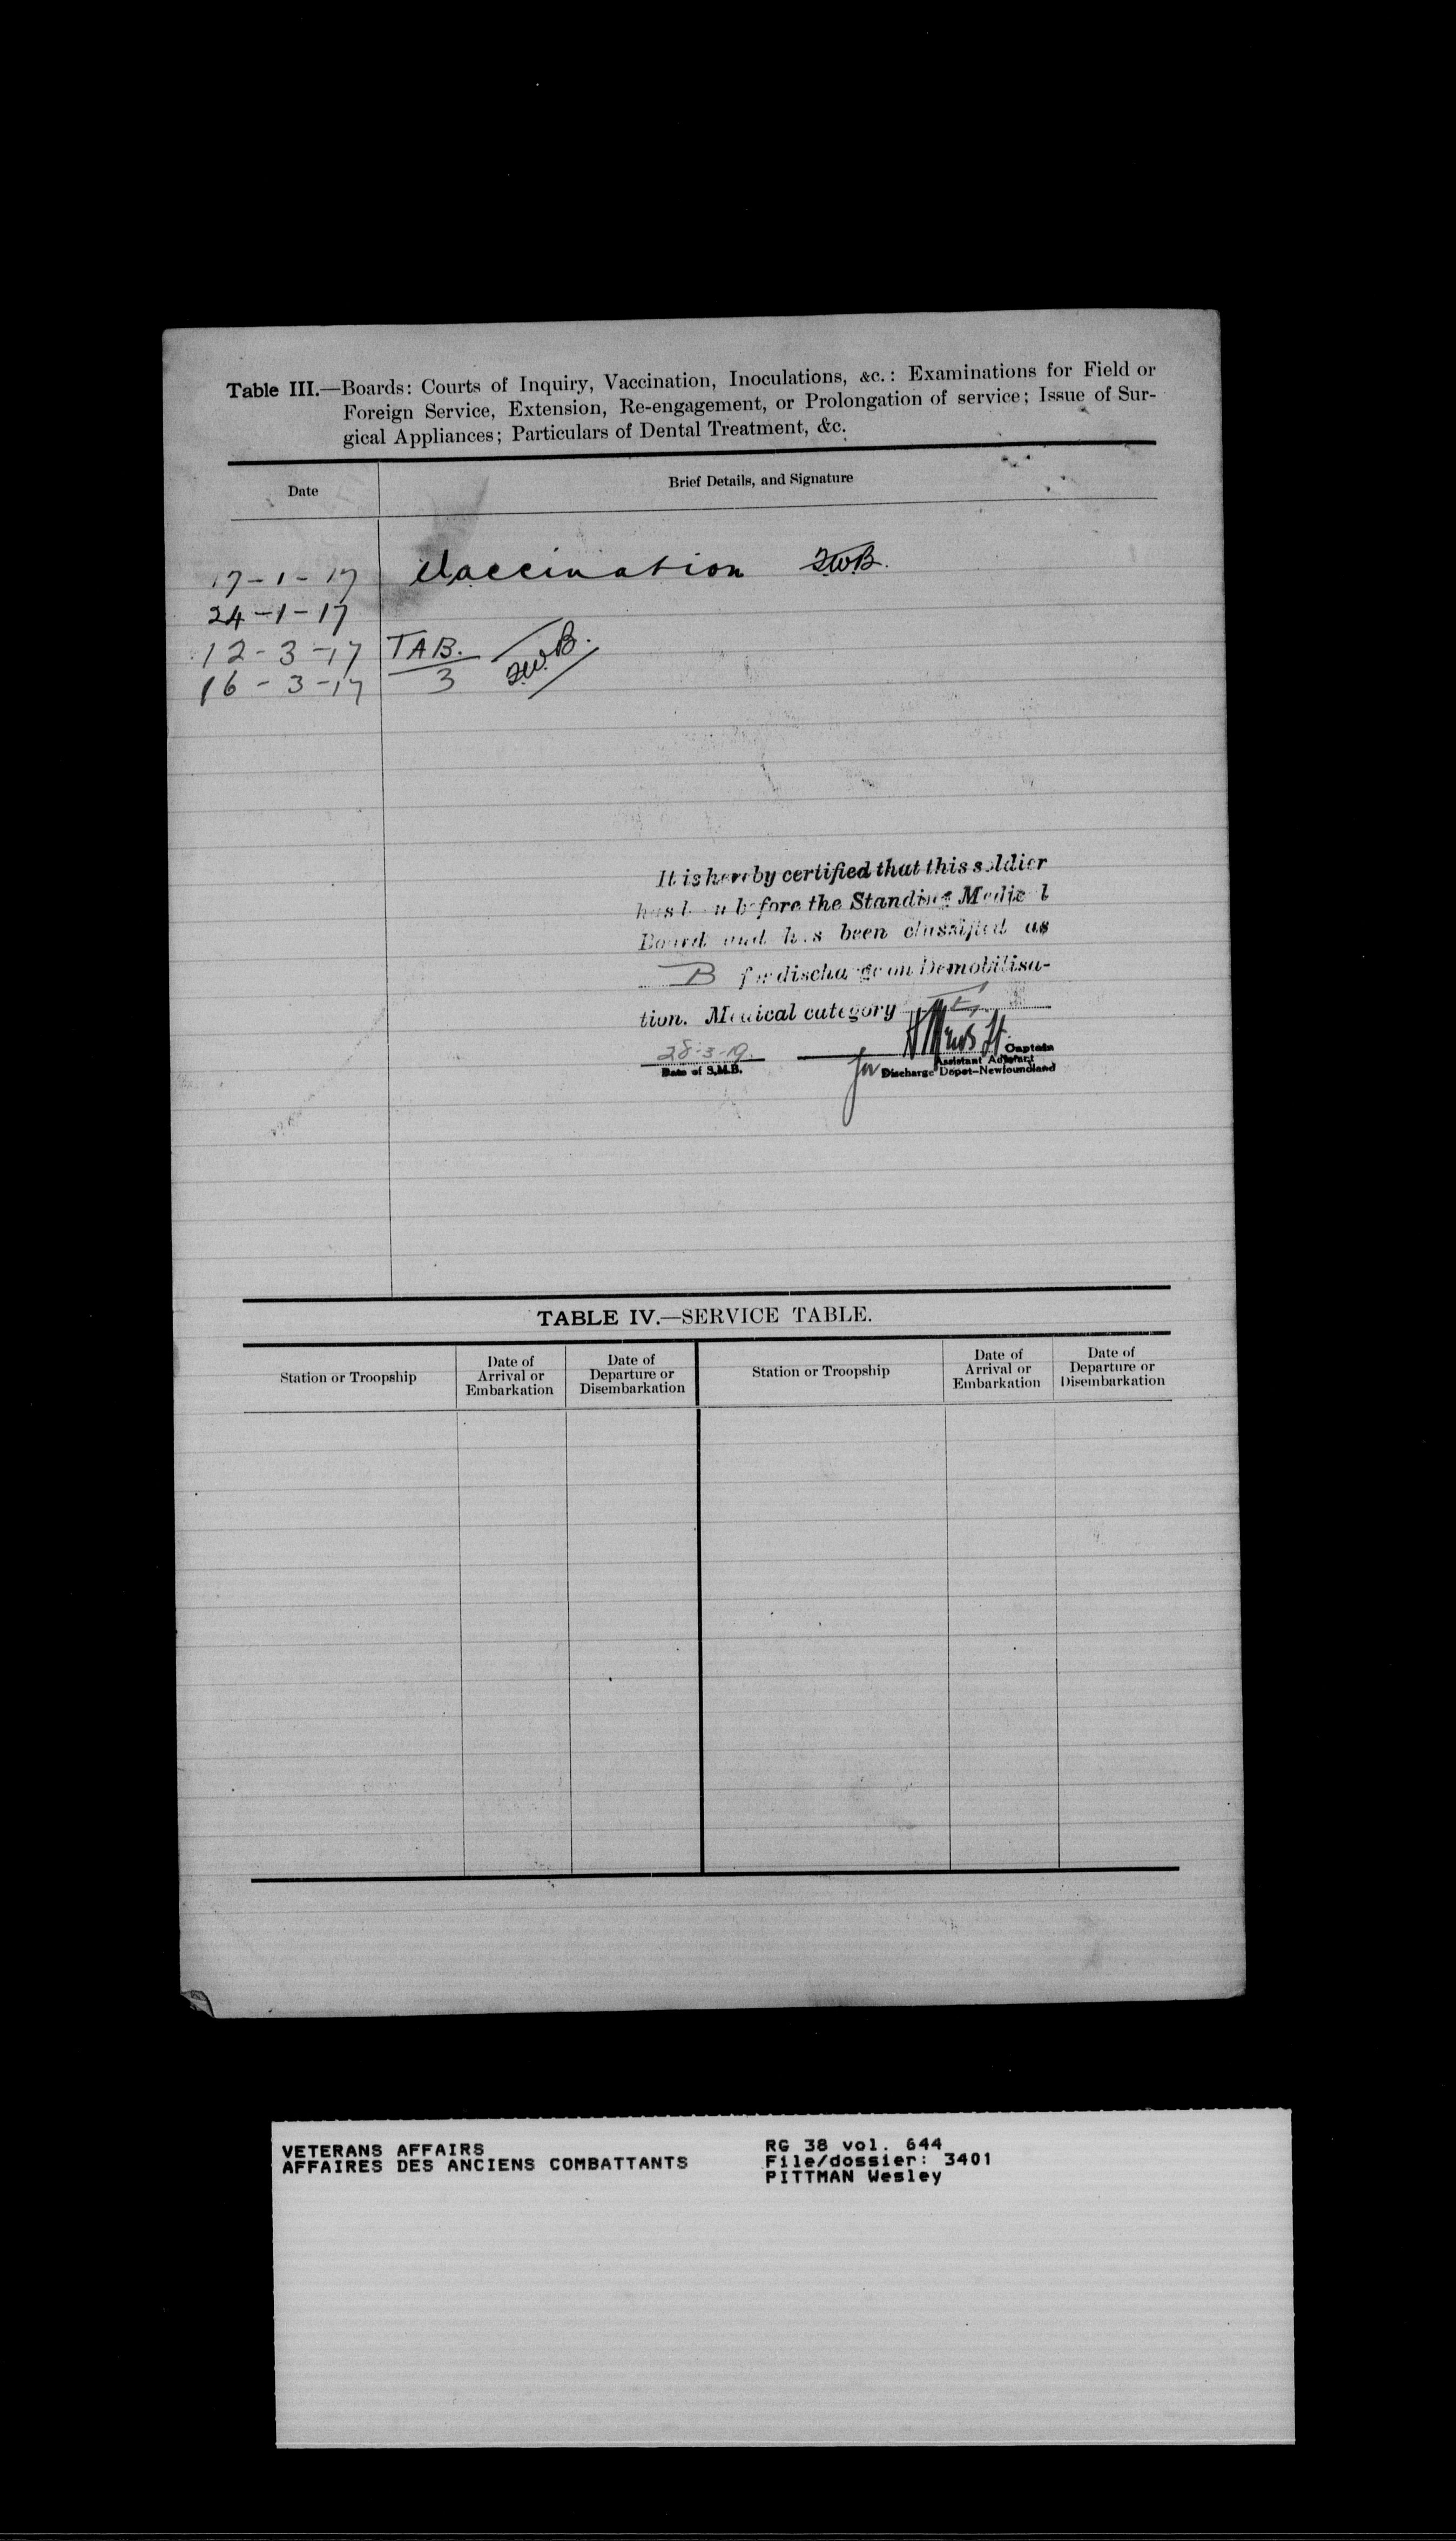 Table III.—Boards: Courts of Inquiry, Vaccination, Inoculations, &c.: Examinations for Field or
Foreign Service, Extension, Re-engagement, or Prolongation of service; Issue of Sur-
gical Appliances; Particulars of Dental Treatment, &c.
Date
Brief Details, and Signature
17-1-17 Vaccination
24-1-17
12-3-17 TAB.
16-3-17 3
It is hereby certified that this soldier
has been before the Standing Medical
Board and has been classified as
B for discharge on Demobilisa-
tion. Medical category
28-3-19.
Date of S.M.B.
Captain
Assistant Adjutant
for Discharge Depot-Newfoundland
TABLE IV.—SERVICE TABLE.
Station or Troopship
Date of
Arrival or
Embarkation
Date of
Departure or
Disembarkation
Station or Troopship
Date of
Arrival or
Embarkation
Date of
Departure or
Disembarkation
VETERANS AFFAIRS
AFFAIRES DES ANCIENS COMBATTANTS
RG 38 vol. 644
File/dossier: 3401
PITTMAN Wesley